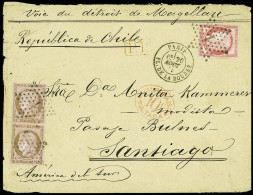 Voie du détroit de Magellan
República de Chile
P.D.
PARIS
PL. DE LA BOURSE
Srta Da Anita Kammerer
modista
Pasaje Bulnes
Santiago
América del Sur